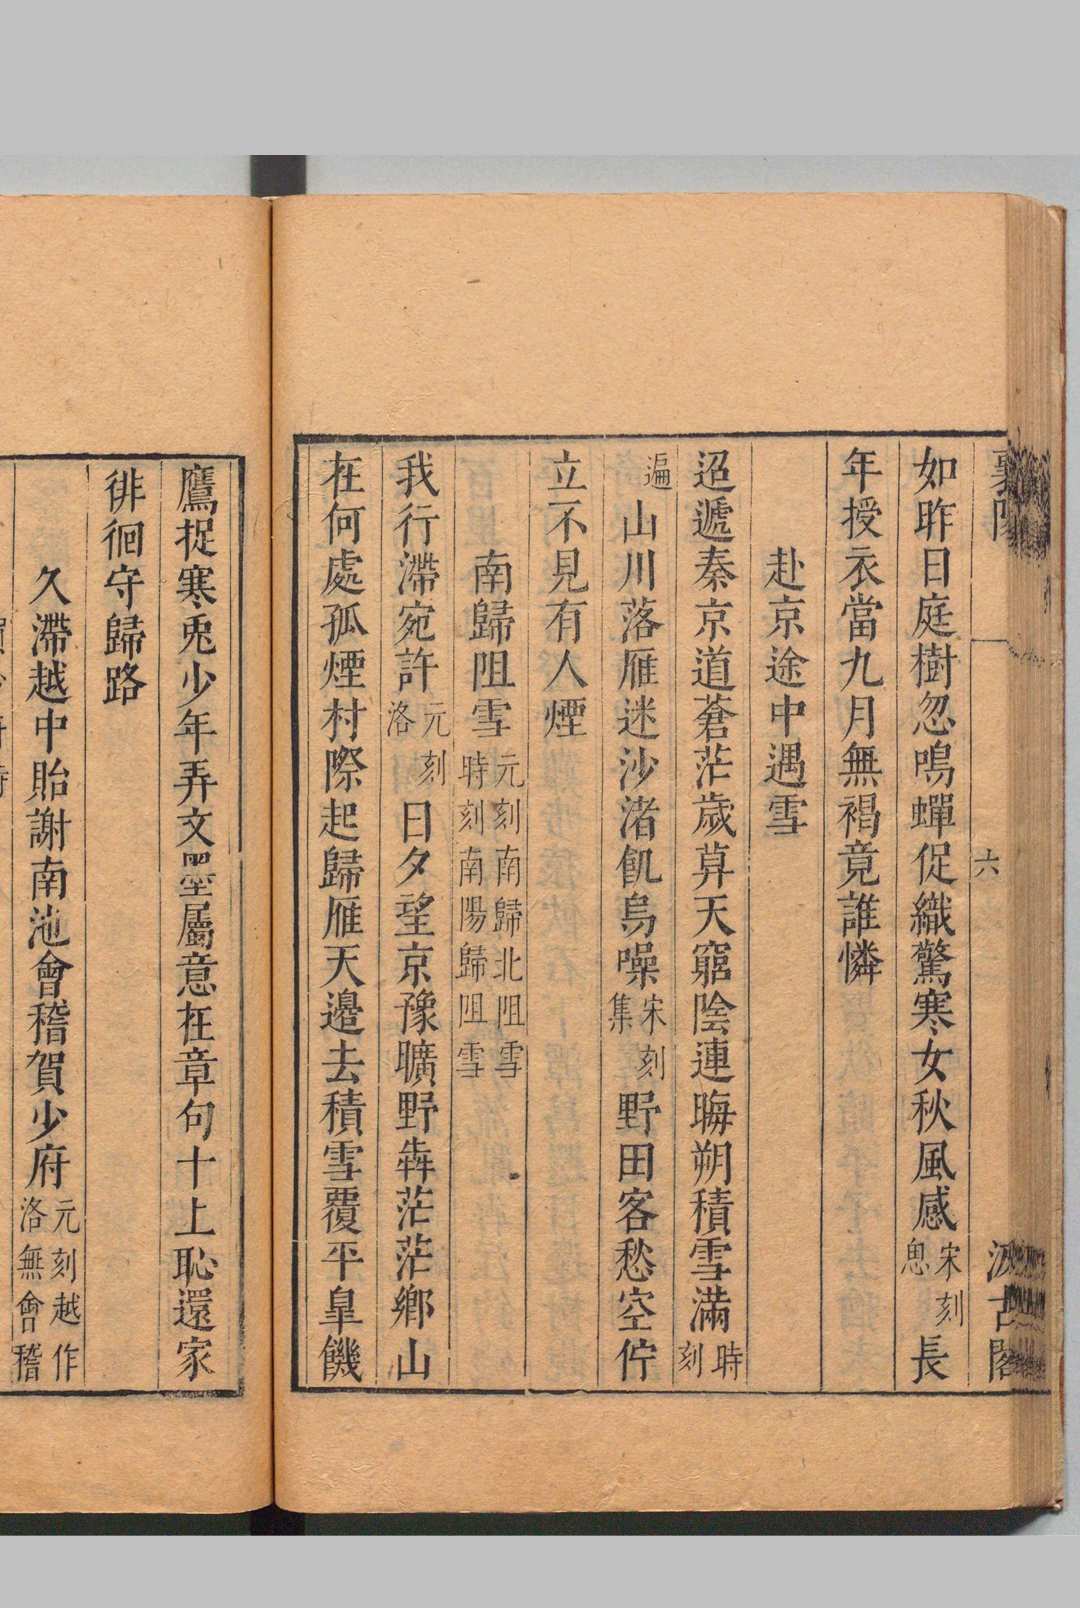 襄陽
六
汲古閣
如昨日庭樹忽鳴蟬促織驚寒女秋風感宋刻思長
年授衣當九月無褐竟誰憐
赴京途中遇雪
迢遞秦京道蒼茫歲暮天窮陰連晦朔積雪滿時刻
遍山川落雁迷沙渚飢烏噪宋刻集野田客愁空佇
立不見有人煙
南歸阻雪元刻南歸北阻雪時刻南陽歸阻雪
我行滯宛許元刻洛日夕望京豫曠野莽茫茫鄉山
在何處孤煙村際起歸雁天邊去積雪覆平皐饑
鷹捉寒兎少年弄文墨屬意在章句十上恥還家
徘徊守歸路
久滯越中貽謝南池會稽賀少府元刻越作洛無會稽